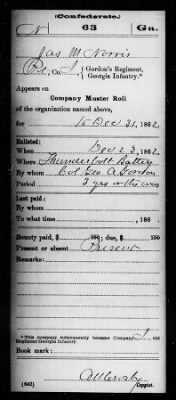 (Confederate.)
N 63 Ga.
Jas M Norris
Co. I, Gordon's Regiment, Georgia Infantry.*
Appears on
Company Muster Roll
of the organization named above,
for to Dec 31, 1862.
Enlisted:
When Dec 23, 1862.
Where Thunderbolt Battery
By whom Col Geo A Gordon
Period 3 yrs or the war
Last paid:
By whom
To what time , 186 .
Bounty paid, $ 100; due, $ 100
Present or absent Present
Remarks:
* This company subsequently became Company I, 63 Regiment Georgia Infantry.
Book mark:
(642) Copyist.